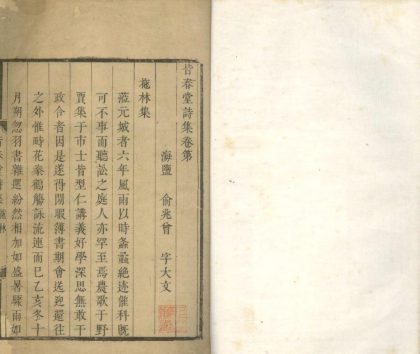 皆春堂詩集卷第
海鹽 俞兆曾 字大文
蒞林集
蒞元城者六年風雨以時螽蝝絶迹催科旣
可不事而聽訟之庭人亦罕至焉農歌于野
賈集于市士皆型仁講義好學深思無敢干
政令者因是遂得閒暇簿書期會送迎還往
之外惟時花秦鶴觴詠流連而已乙亥冬十
月朔忽羽書雜遝紛然相加如盛暑驟雨如